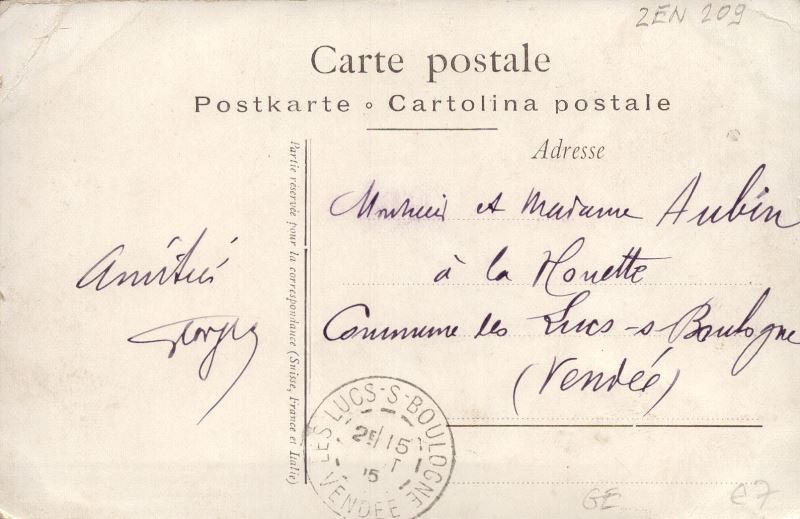 ZEN 209
Carte postale
Postkarte ∘ Cartolina postale
Adresse
Partie réservée pour la correspondance (Suisse, France et Italie)
Amitiés
Georges
Monsieur et Madame Aubin
à la
Commune des Lucs-s-Boulogne
(Vendée)
LES LUCS-S-BOULOGNE
2E/15
15
VENDÉE
GE
€7